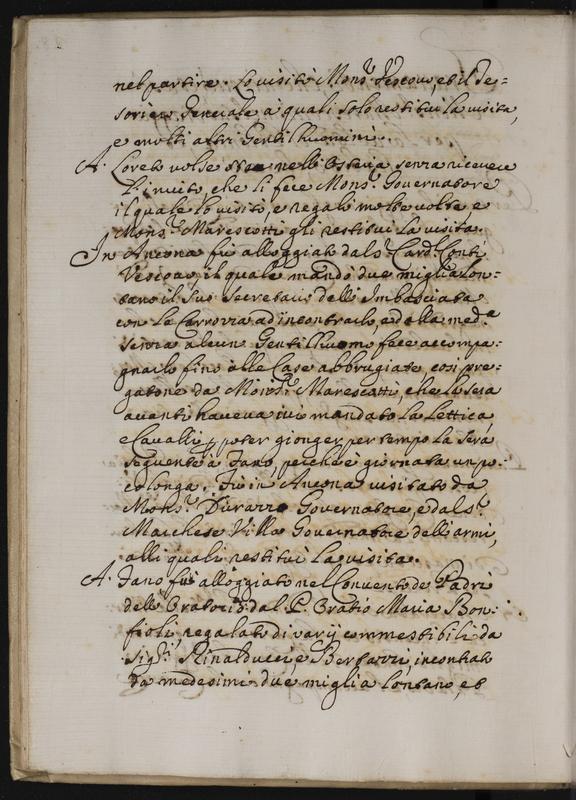 nel partire. Lo visitò Mons.r Vescovo, et il Te=
soriero Generale a quali solo restituì la visita,
e molti altri Gentilhuomini.
A. Loreto volse nell'Osteria senza ricevere
l'invito, che li fece Mons.r Governatore
il quale lo visitò, e regalò molte volte e
Mons.r Marescotti gli restituì la visita.
In Ancona fù alloggiato dal s.r Card.l Conti
Vescovo, il quale mandò due miglia lon=
tano il suo Secretario dell'Imbasciata
con la Carrozza ad incontrarlo, e dalla med.e
senza alcun Gentilhuomo fece accompa=
gnarlo fino alle Case abbrugiate, così pre=
gatone da Mons.r Marescotti, che la sera
avanti haveva ivi mandato la lettica,
e Cavalli p poter gionger per tempo la sera
seguente à Fano, perche è giornata un po=
co longa. Fù in Ancona visitato da
Mons.r Governatore, e dal s.r
Marchese Villa Governatore dell'armi,
alli quali restituì la visita.
A. Fano fù alloggiato nel Convento de Padri
dell'Oratorio dal P. Oratio Maria Bon=
fioli, regalato di varij commestibili da
Sig.ri Rinalducci e Bertozzi, incontrato
da medesimi due miglia lontano, et